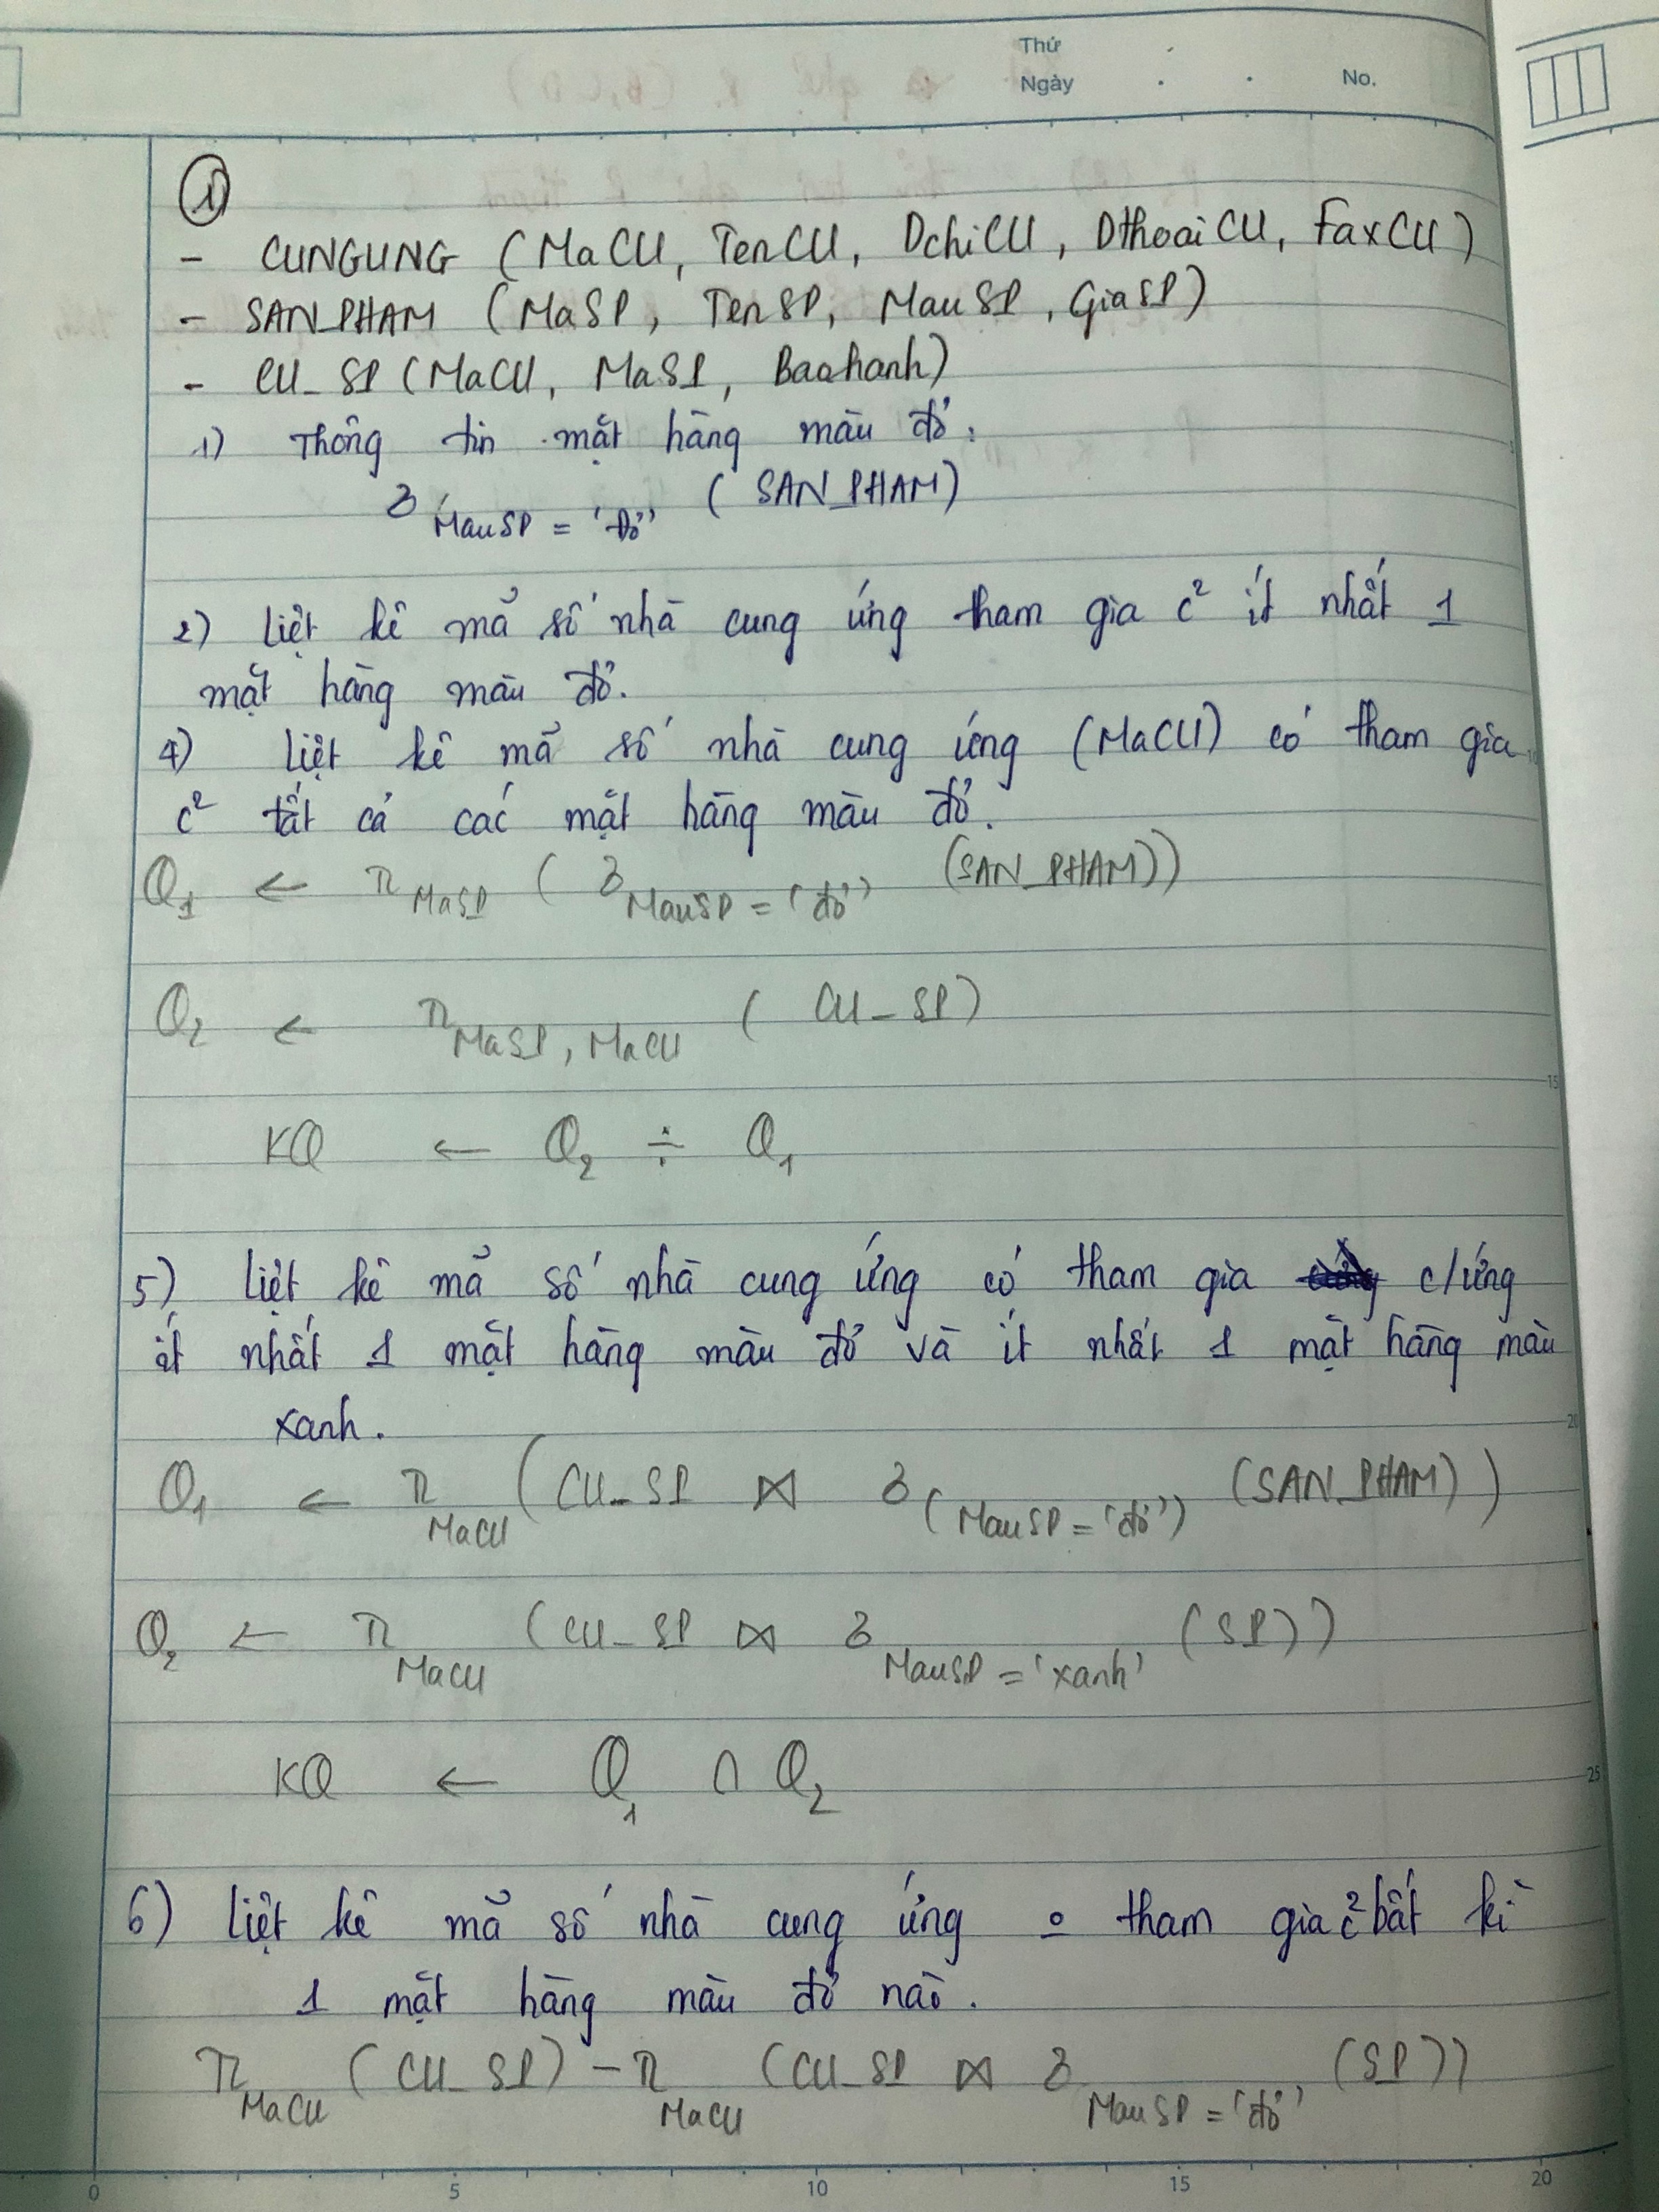 Thứ
Ngày No.
①
- CUNGUNG (MaCU, TenCU, DchiCU, DthoaiCU, FaxCU)
- SAN_PHAM (MaSP, TenSP, MauSP, GiaSP)
- CU_SP (MaCU, MaSP, Baohanh)
1) Thông tin mặt hàng màu đỏ.
σ MauSP = 'Đỏ' (SAN_PHAM)
2) Liệt kê mã số nhà cung ứng tham gia c² ít nhất 1
mặt hàng màu đỏ.
4) Liệt kê mã số nhà cung ứng (MaCU) có tham gia
c² tất cả các mặt hàng màu đỏ.
Q₁ ← π MaSP (σ MauSP = 'đỏ' (SAN_PHAM))
Q₂ ← π MaSP, MaCU (CU_SP)
KQ ← Q₂ ÷ Q₁
5) Liệt kê mã số nhà cung ứng có tham gia c/ứng
ít nhất 1 mặt hàng màu đỏ và ít nhất 1 mặt hàng màu
xanh.
Q₁ ← π MaCU (CU_SP ⋈ σ (MauSP = 'đỏ') (SAN_PHAM))
Q₂ ← π MaCU (CU_SP ⋈ σ MauSP = 'xanh' (SP))
KQ ← Q₁ ∩ Q₂
6) Liệt kê mã số nhà cung ứng o tham gia c² bất kì
1 mặt hàng màu đỏ nào.
π MaCU (CU_SP) - π MaCU (CU_SP ⋈ σ MauSP = 'đỏ' (SP))
0 5 10 15 20